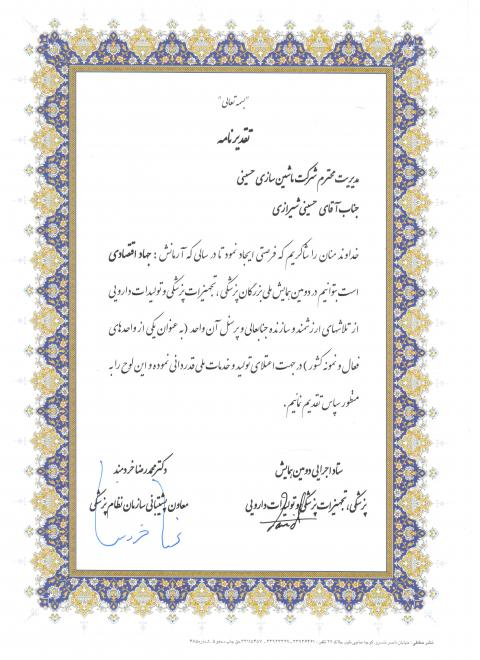 "بسمه تعالی"
تقدیرنامه
مدیریت محترم شرکت ماشین سازی حسینی
جناب آقای حسینی شیرازی
خداوند منان را شاکریم که فرصتی ایجاد نمود تا در سالی که آرمانش : جهاد اقتصادی
است بتوانیم در دومین همایش ملی بزرگان پزشکی، تجهیزات پزشکی و تولیدات دارویی
از تلاشهای ارزشمند و سازنده جنابعالی و پرسنل آن واحد (به عنوان یکی از واحدهای
فعال و نمونه کشور) در جهت اعتلای تولید و خدمات ملی قدردانی نموده و این لوح را به
منظور سپاس تقدیم نمائیم.
ستاد اجرایی دومین همایش
پزشکی، تجهیزات پزشکی و تولیدات دارویی
دکتر محمدرضا خردمند
معاون پشتیبانی سازمان نظام پزشکی